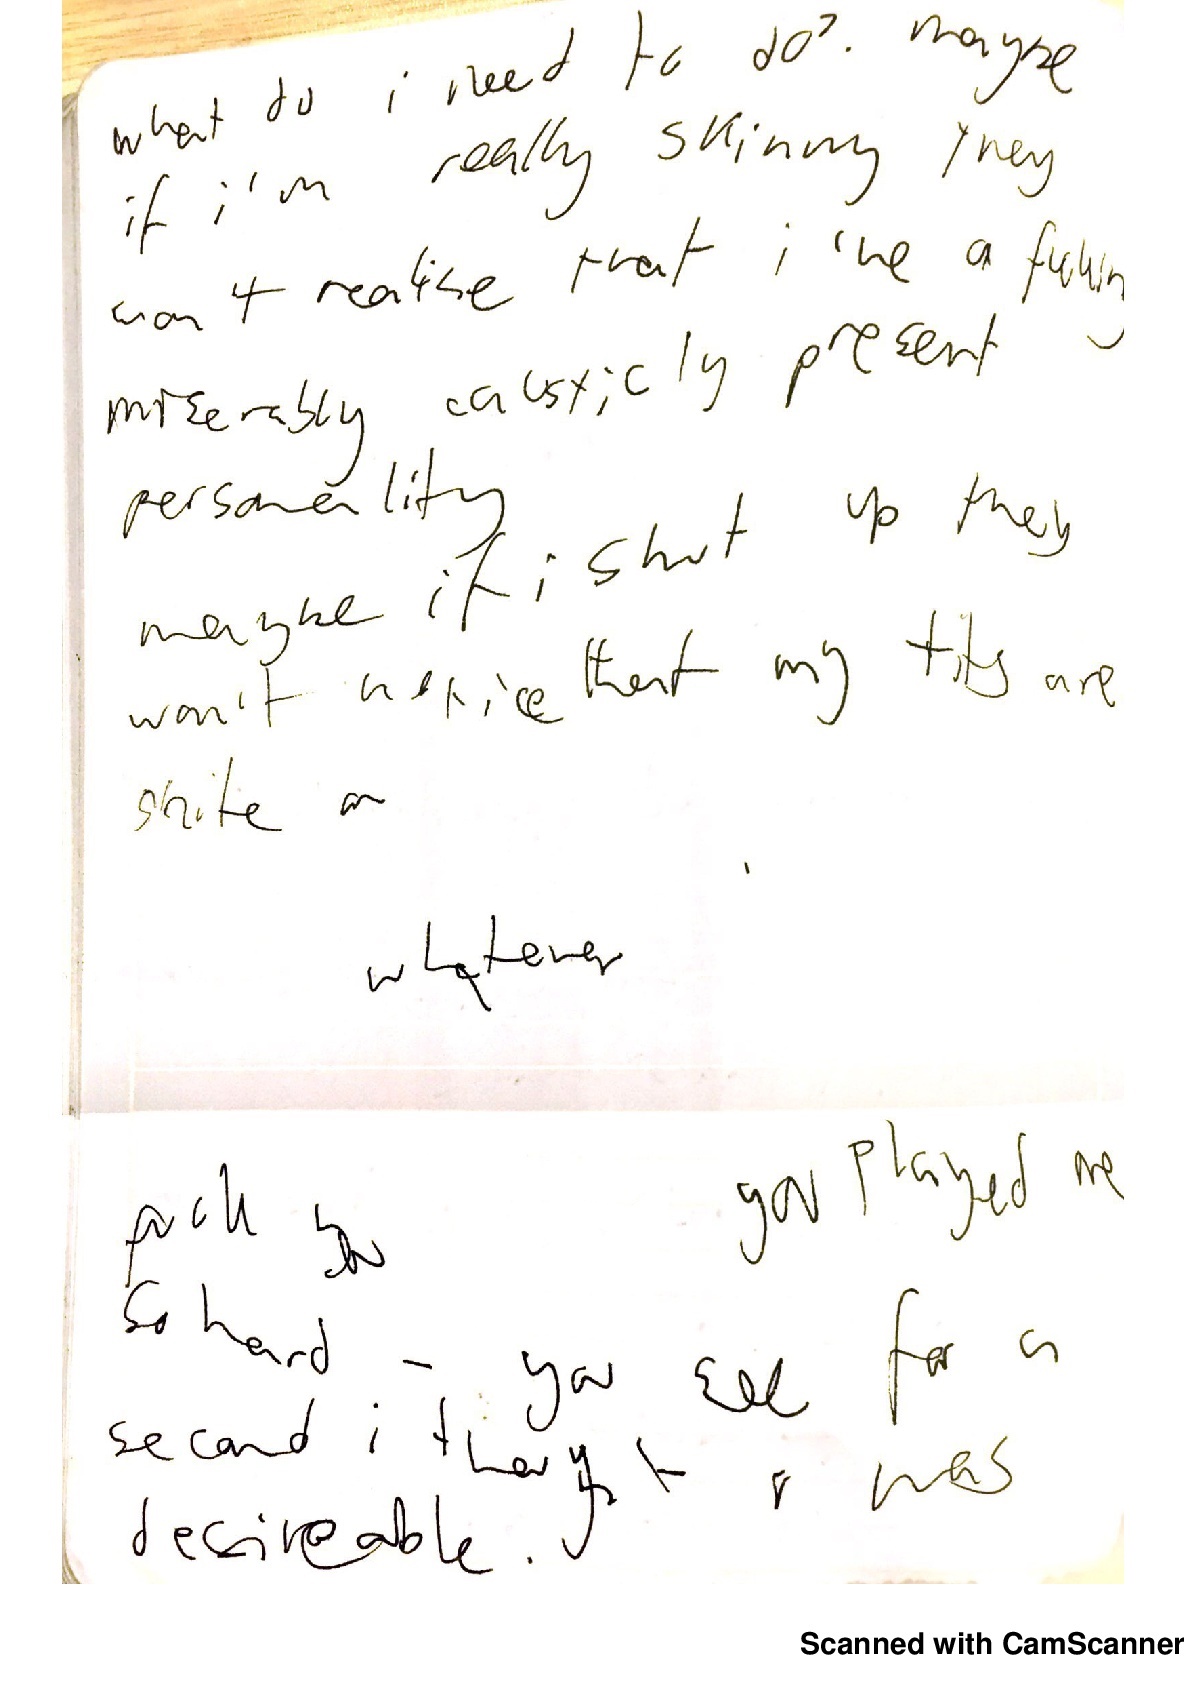 what do i need to do?. maybe
if i'm really skinny they
won't realise that i've a fuckin
miserably causticly present
personality
maybe if i shut up they
won't notice that my tits are
shite
whatever
fuck you you played me
so hard - you see for a
second i thought i was
desireable.
Scanned with CamScanner